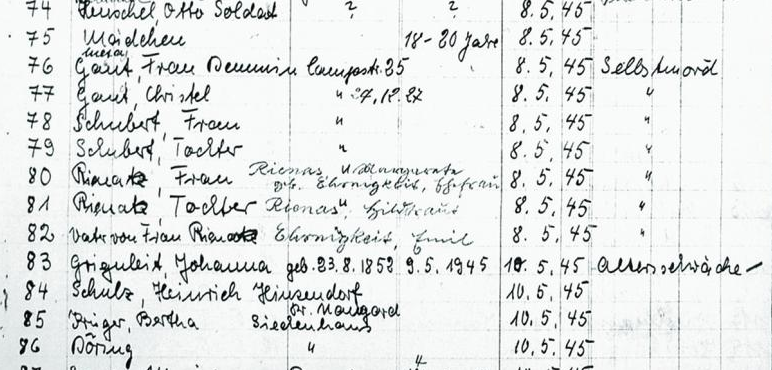 74 Henschel, Otto Soldat ? ? 8.5.45
75 Mädchen 18-20 Jahre 8.5.45
76 Gaut, Frau Demmin Campstr. 25 8.5.45 Selbstmord
77 Gaut, Christel " 24.12.27 8.5.45 "
78 Schubert, Frau " 8.5.45 "
79 Schubert, Tochter " 8.5.45 "
80 Frau Rienas, Margarete
geb. Ehronigkeit, Ehefrau 8.5.45 "
81 Tochter Rienas, Hildtraut 8.5.45 "
82 Vater von Frau Ehronigkeit, Emil 8.5.45 "
83 Griguleit, Johanna geb. 23.8.1852 9.5.1945 10.5.45 Altersschwäche
84 Schulz, Heinrich Hinzendorf 10.5.45
Kr. Naugard
85 Krüger, Bertha Siechenhaus 10.5.45
86 Döring " 10.5.45